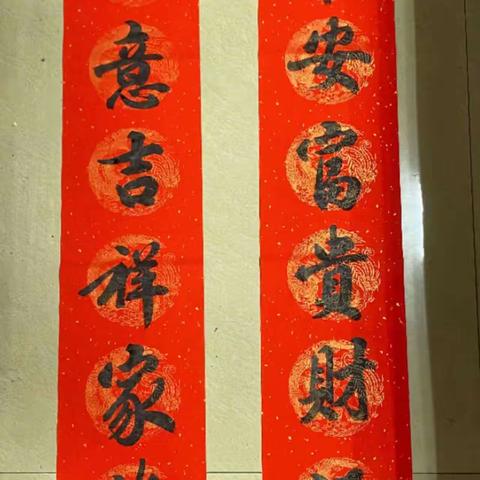 安富貴財
意吉祥家